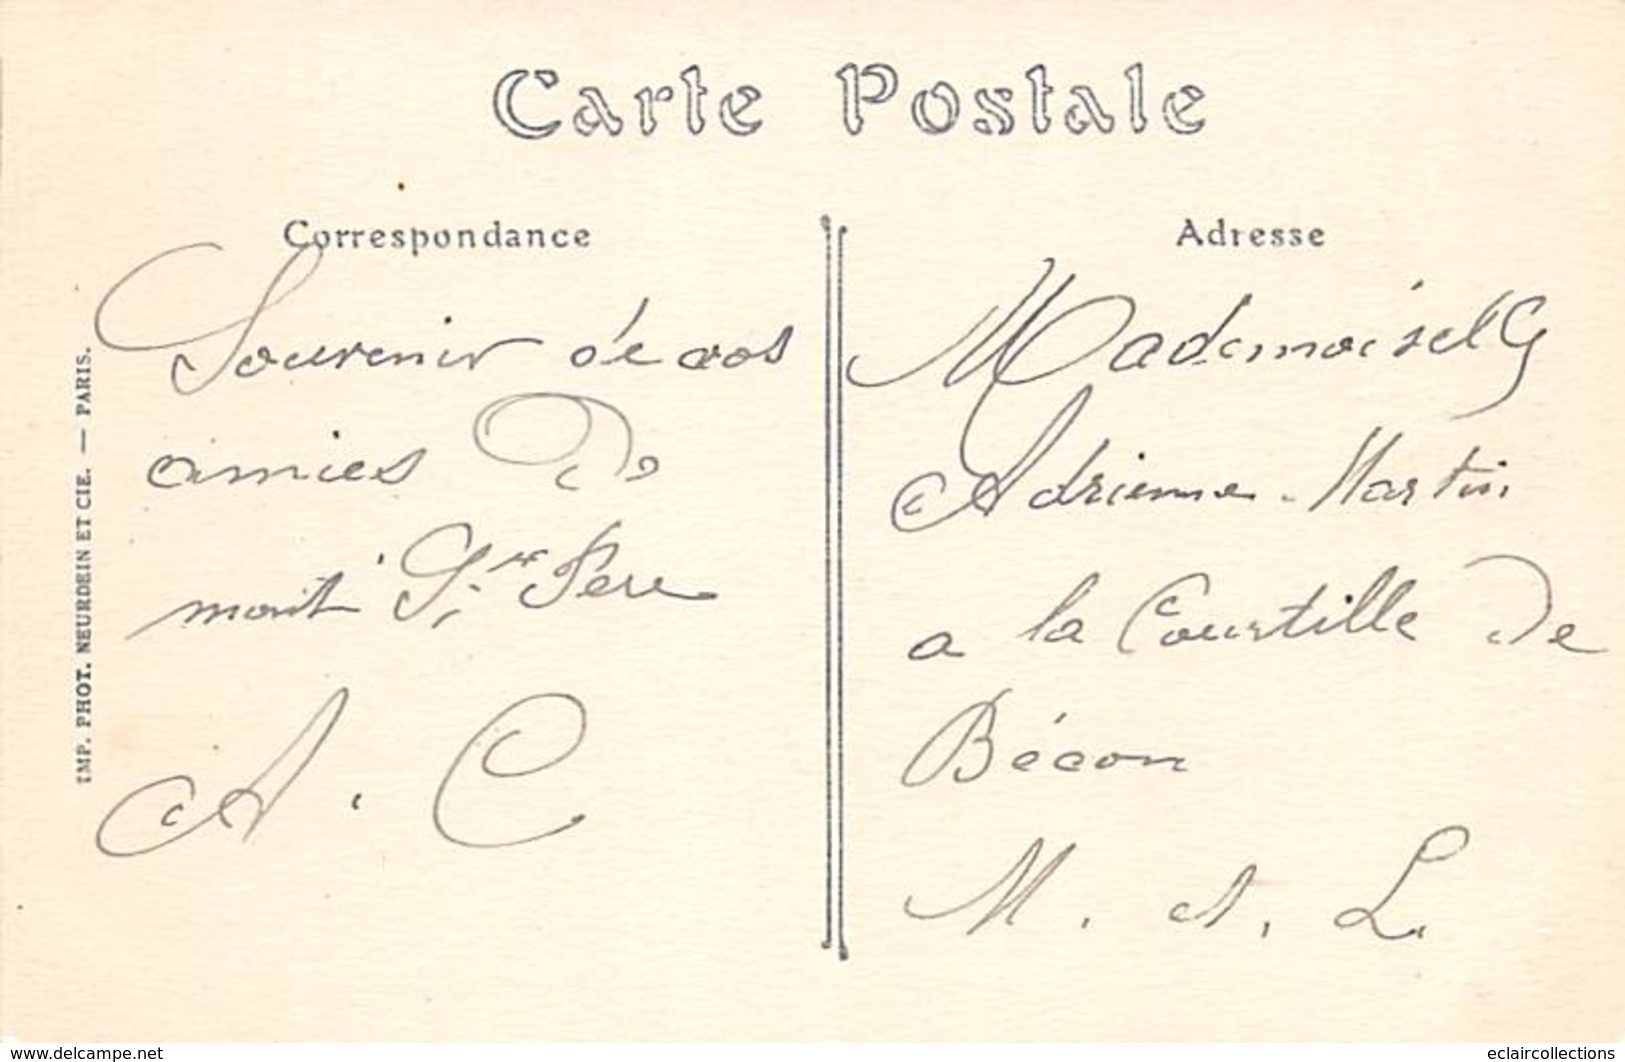 Carte Postale
Correspondance
Souvenir de vos
amies De
mont St Pere
A. C
Adresse
Mademoiselle
Adrienne Martin
a la Courtille De
Bécon
M. A. L.
IMP. PHOT. NEURDEIN ET CIE. — PARIS.
www.delcampe.net
eclaircollections